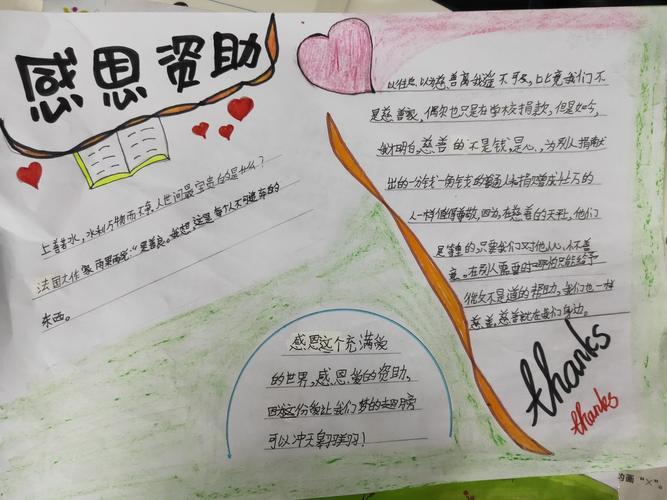 感恩资助
上善若水，水利万物而不争，人世间最宝贵的是什么？
法国大作家雨果说："是善良。我想，这是每个人不可避弃的
东西。
以往总以为慈善离我能不可及，比竟我们不
是慈善家，偶尔也只是在学校捐款，但是如今，
我才明白，慈善的不是钱，是心，为别人捐献
出的一分钱一角钱的普通人和捐赠成社万的
人一样值得尊敬，因为在慈善的天秤，他们
是等重的，只要我们对他人心怀善
意。在别人需要时哪怕只能给予
微不足道的帮助，我们也一样
慈善，慈善就在我们身边。
感恩这个充满爱
的世界，感恩爱的资助，
因为这份爱让我们梦的翅膀
可以冲天翱翔！
thanks
thanks
的画"×"。